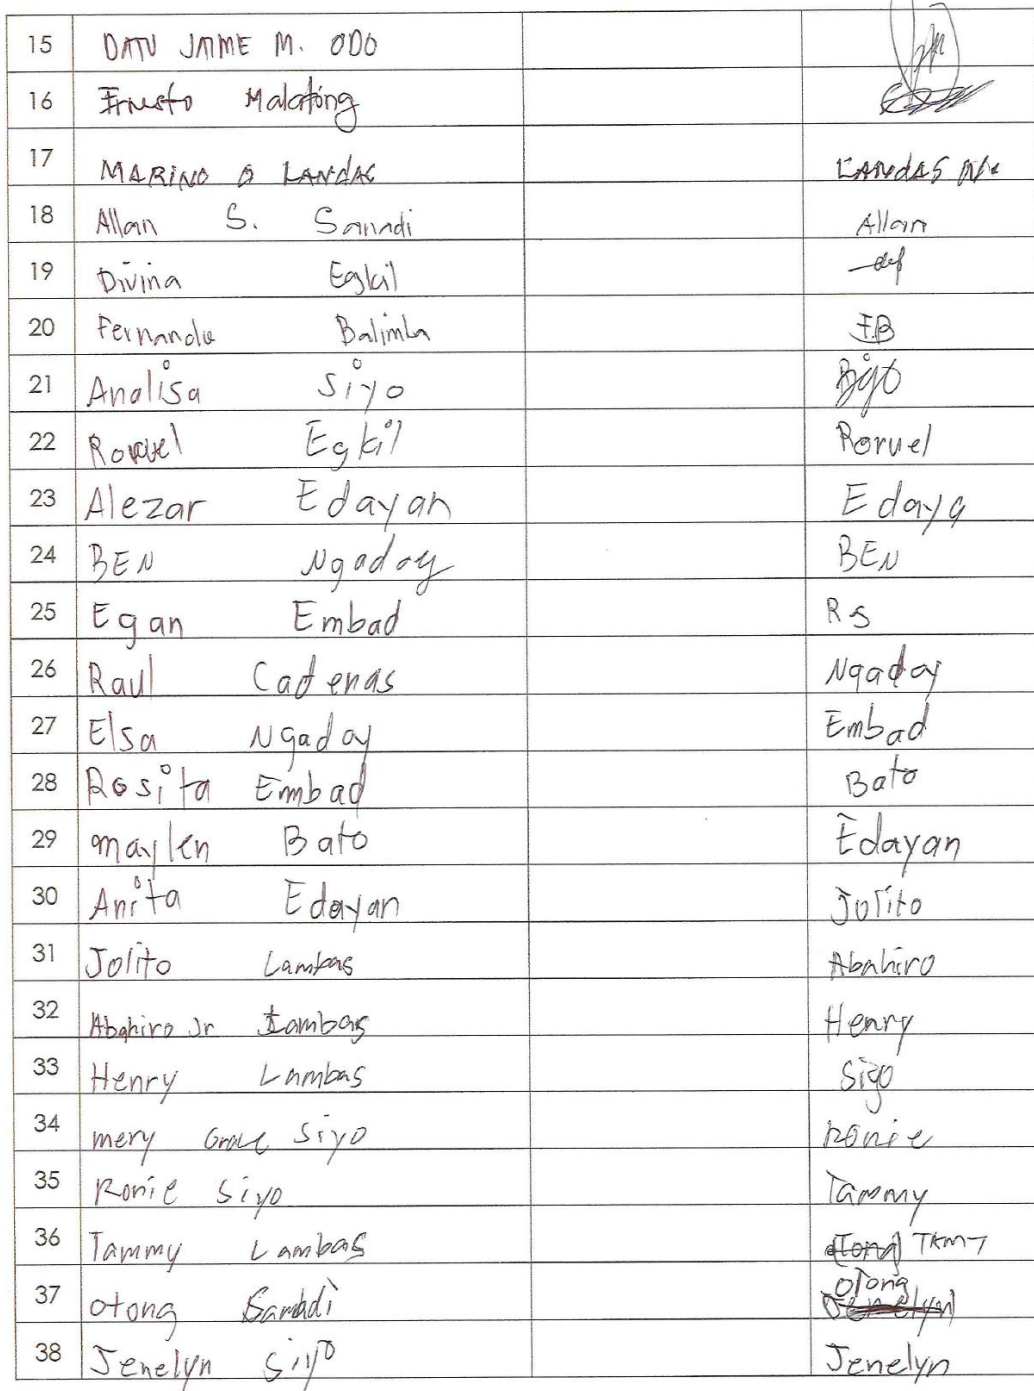 15 DATU JAIME M. ODO
16 Ernesto Malatong
17 MARINO O LANDAS LANDAS
18 Allan S. Sanadi Allan
19 Divina Egkil
20 Fernando Balimba F.B
21 Analisa Siyo
22 Roruel Egkil Roruel
23 Alezar Edayan Edaya
24 BEN Ngaday BEN
25 Egan Embad RS
26 Raul Cadenas Ngaday
27 Elsa Ngaday Embad
28 Rosita Embad Bato
29 maylen Bato Edayan
30 Anita Edayan Jolito
31 Jolito Lambas Abahiro
32 Abahiro Jr Lambas Henry
33 Henry Lambas Siyo
34 mery Grace Siyo Ronie
35 Ronie Siyo Tammy
36 Tammy Lambas
37 otong Otong
38 Jenelyn Siyo Jenelyn